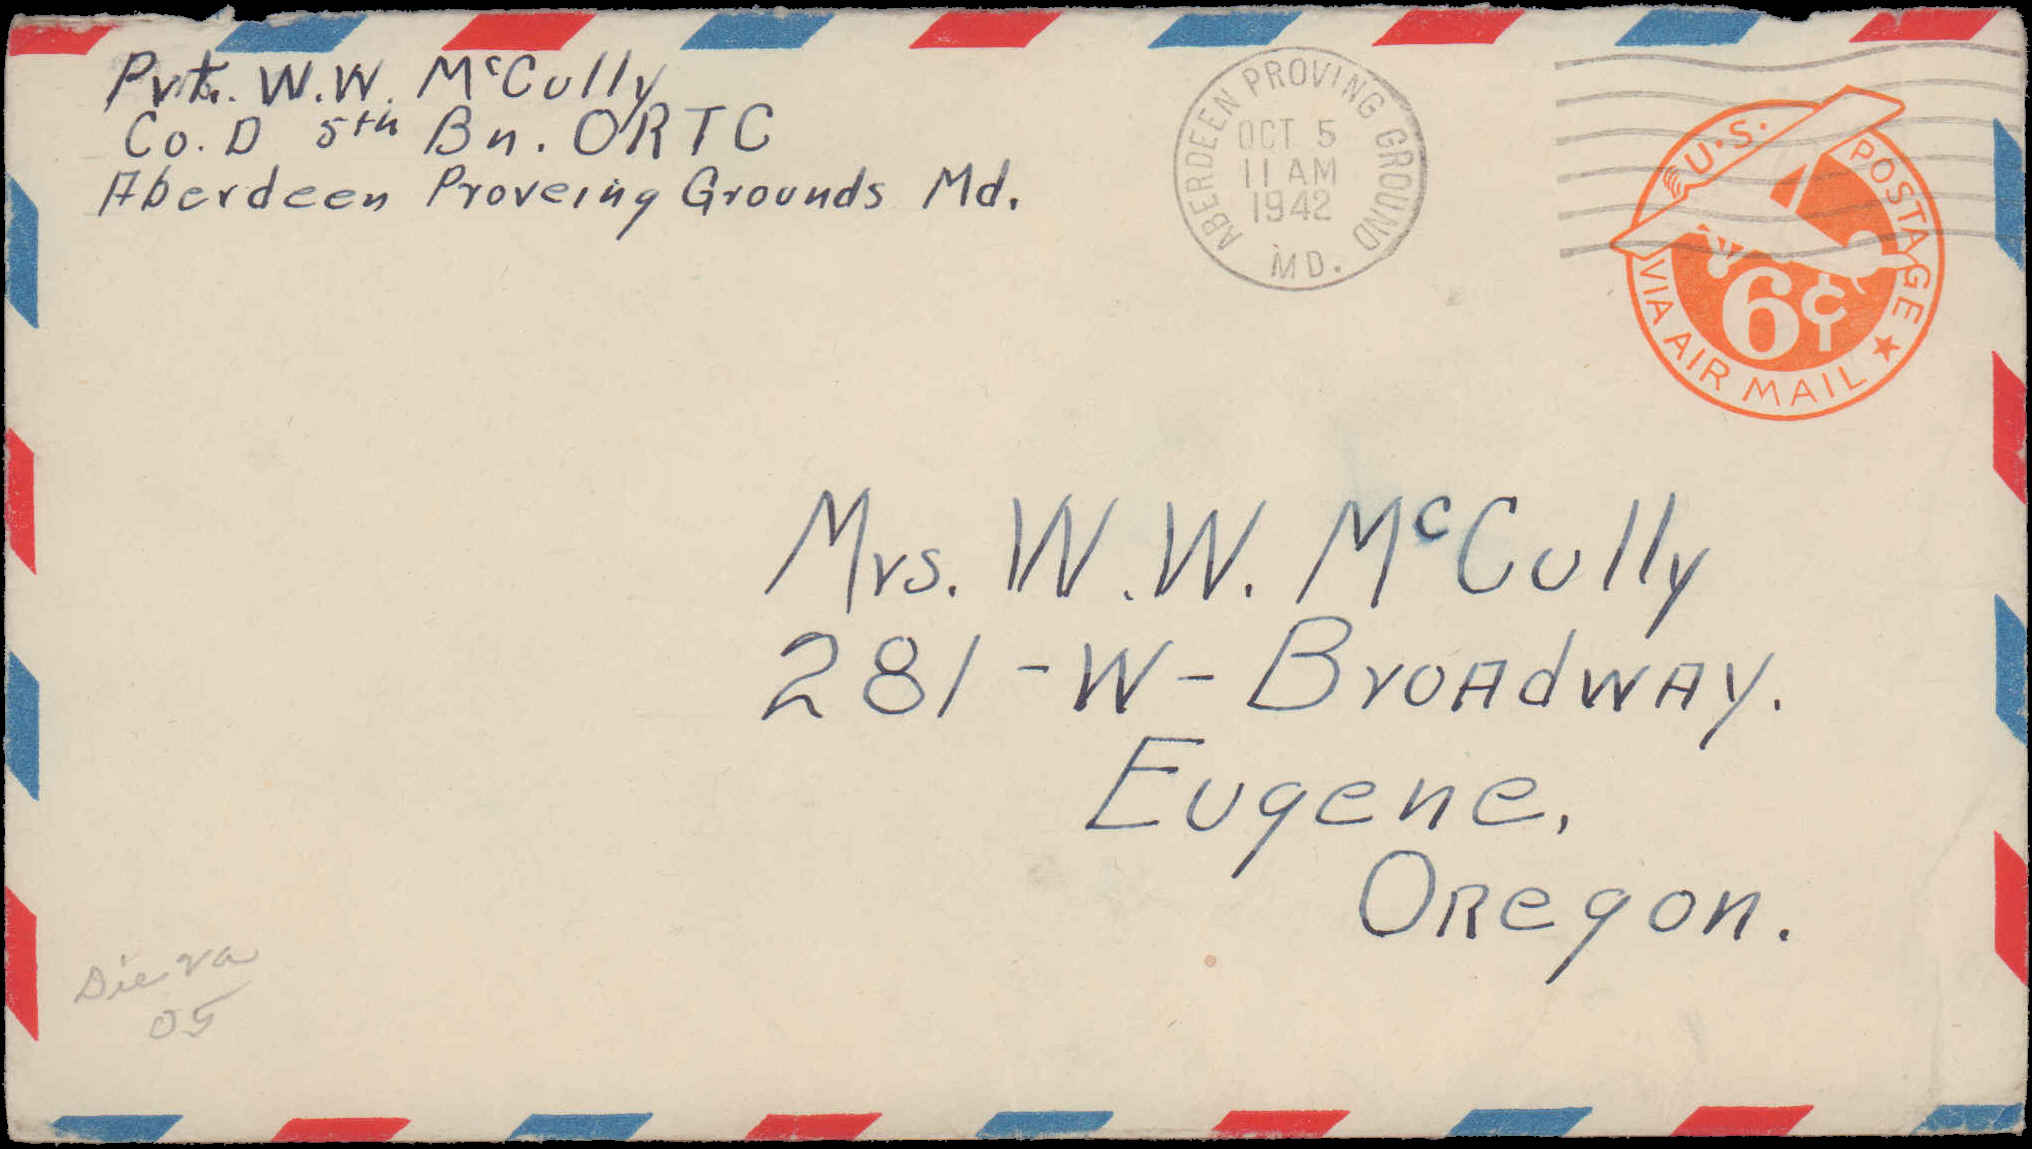 Pvt. W.W. McCully
Co. D 5th Bn. ORTC
Aberdeen Proveing Grounds Md.
ABERDEEN PROVING GROUND
OCT 5
11 AM
1942
MD.
U.S. POSTAGE
6¢
VIA AIR MAIL
Mrs. W.W. McCully
281-W-Broadway.
Eugene,
Oregon.
Die
05